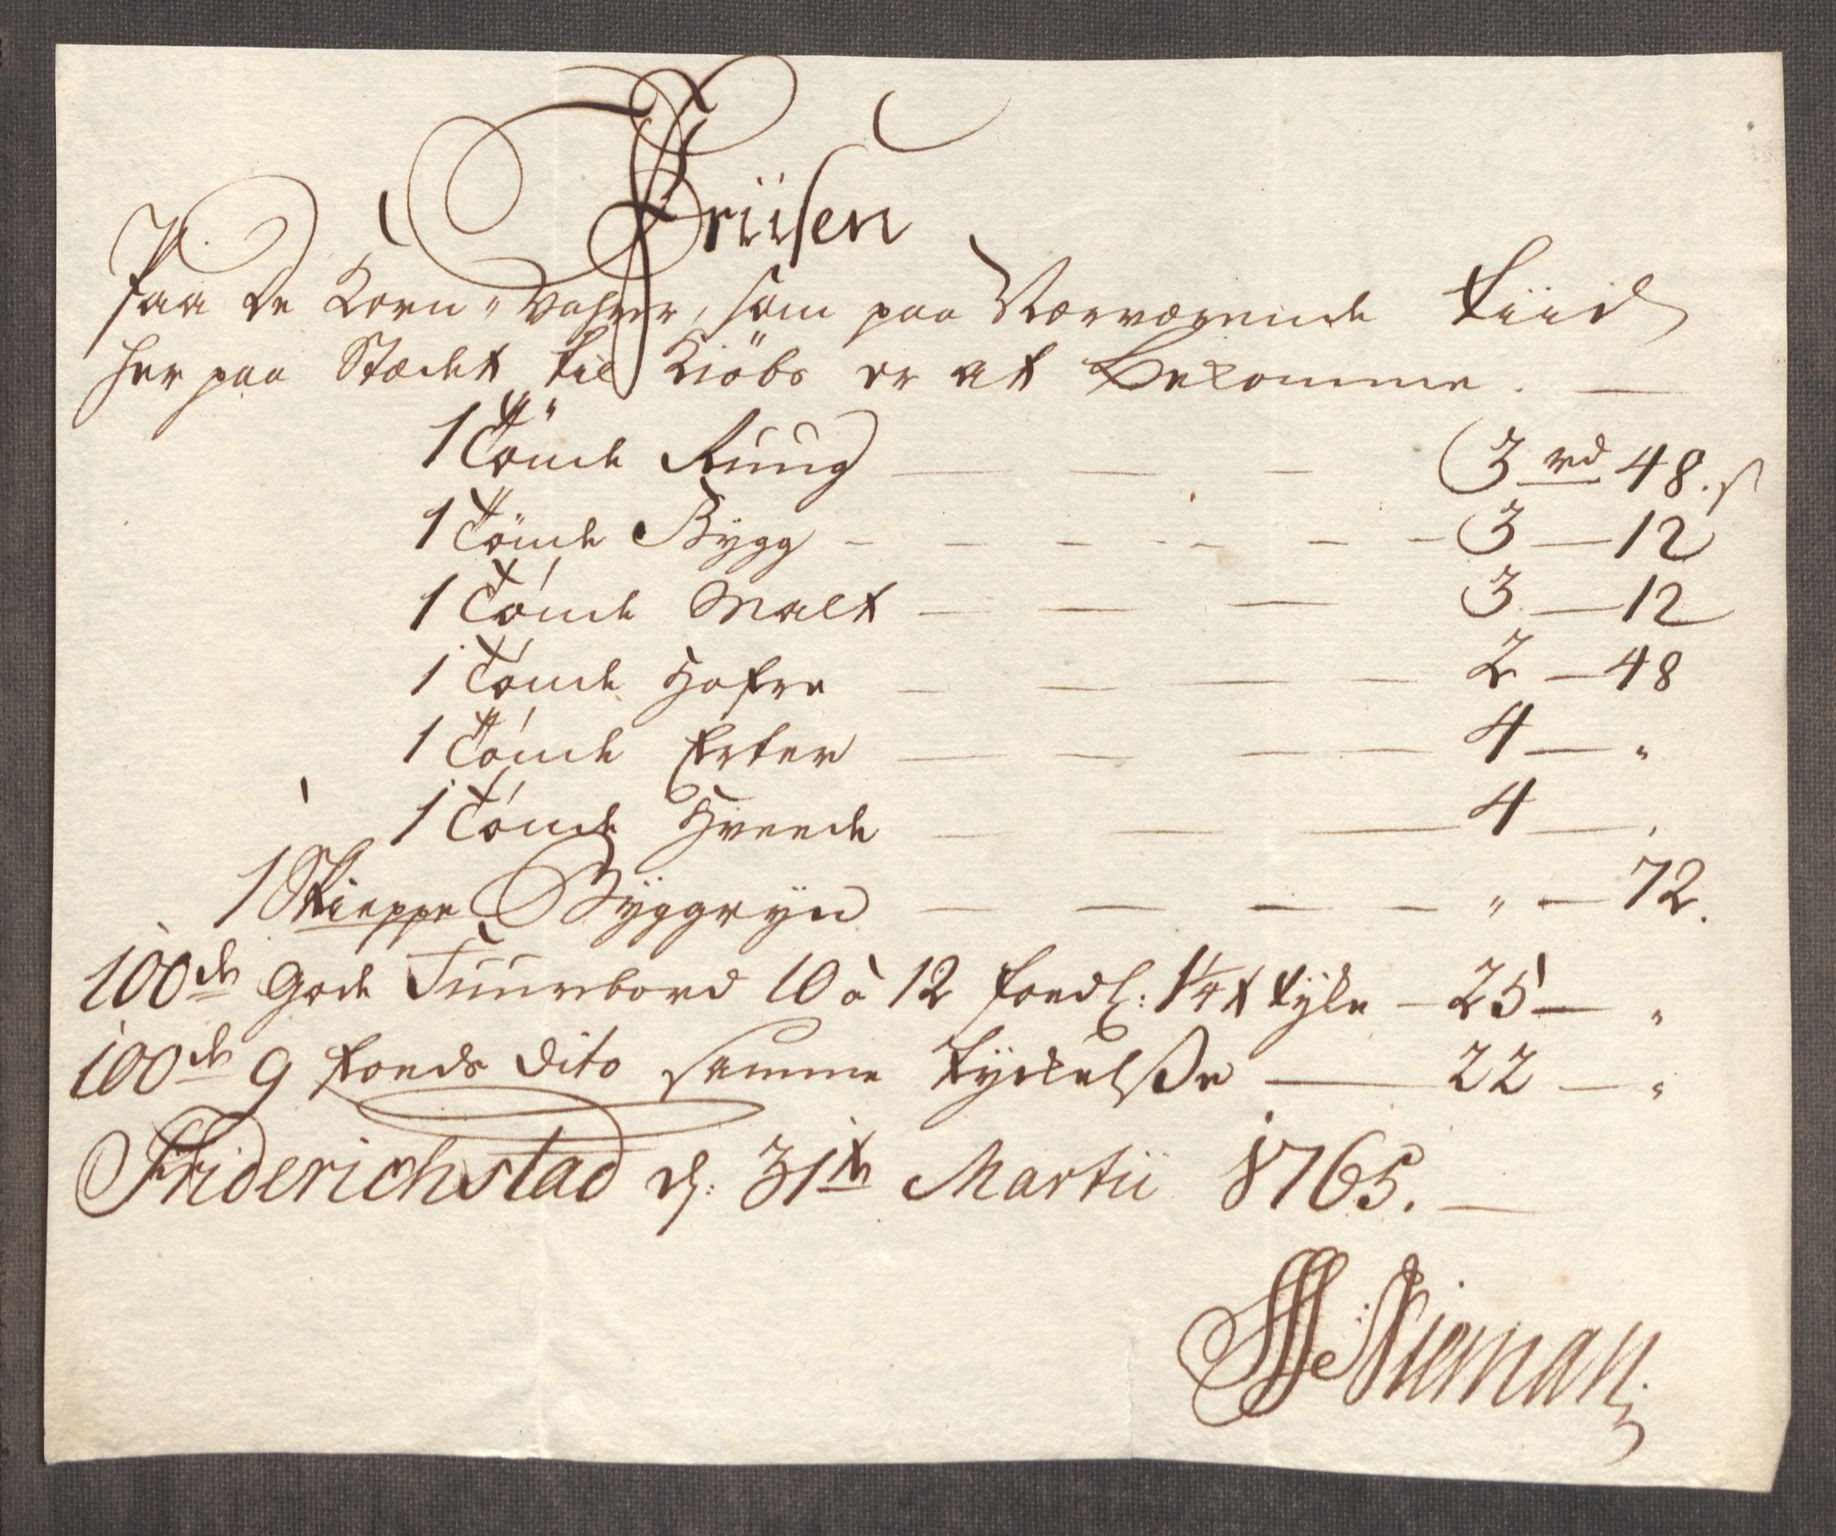 Priisen
Paa de Korn-Vahrer, som paa Nærværende tiid
her paa Stædet til Kiöbs er at bekomme. —
1 Tönde Ruug — — — 3 rd 48 s
1 Tönde Bygg — — — 3 — 12
1 Tönde Malt — — — 3 — 12
1 Tönde Hafre — — — 2 — 48
1 Tönde Erter — — — 4 — "
1 Tönde Hveede — — — 4 — "
1 Skieppe Byggryn — — — " — 72.
100de gode Fuurbord 10 à 12 foed l: 1¼ t tyke — 25 — "
100de 9 foeds dito samme tyckelsse — 22 — "
Friderichstad d: 31te Martii 1765. —
Nieman